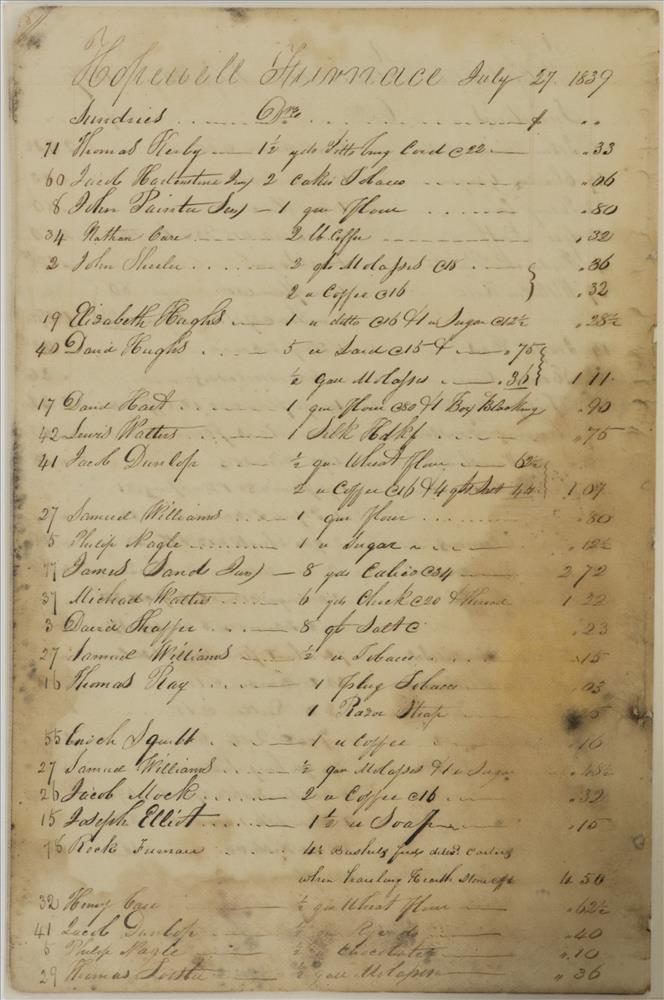 Hopewell Furnace July 27 1839
Sundries Drs $ ..
71 Thomas Kerby 1½ yds Pittsburg Cord @22 .33
60 Jacob Hartenstine Junr 2 Cakes Tobacco .06
8 John Painter Senr 1 qur flour .80
34 Nathan Care 2 lb Coffee .32
2 John Sheeler 2 qts Molasses @18 .36
2 " Coffee @16 .32
19 Elizabeth Hughs 1 " ditto @16 & 1 " Sugar @12½ .28½
40 David Hughs 5 " Lard @15 & .75
½ gall Molasses .36 1 11
17 David Hart 1 qur flour @80 & 1 Box Blacking .90
42 Lewis Walters 1 Silk Hdkf .75
41 Jacob Dunlop ½ qur Wheat flour 62½
2 " Coffee @16 & 4 qts Salt 44 1 07
27 Samuel Williams 1 qur flour .80
5 Philip Nagle 1 " Sugar .12½
77 James Sands Junr 8 yds Calico @34 2 72
37 Michael Watters 6 yds Check @20 & Thread 1 22
3 David Shaffer 8 qts Salt @ .23
27 Samuel Williams ½ " Tobacco .15
16 Thomas Ray 1 plug Tobacco .03
1 Razor Strap .25
55 Enoch Squibb 1 " Coffee .16
27 Samuel Williams ½ gall Molasses & 1 " Sugar .48½
26 Jacob Mock 2 " Coffee @16 .32
15 Joseph Elliot 1½ " Soap .15
75 Rock Furnace 4½ Bushels feed
when hauling Hearth Stone 4 50
32 Henry Care ½ qur Wheat flour .62½
41 Jacob Dunlop ½ .40
5 Philip Nagle ½ " Chocolate .10
29 Thomas ½ gall Molasses " 36